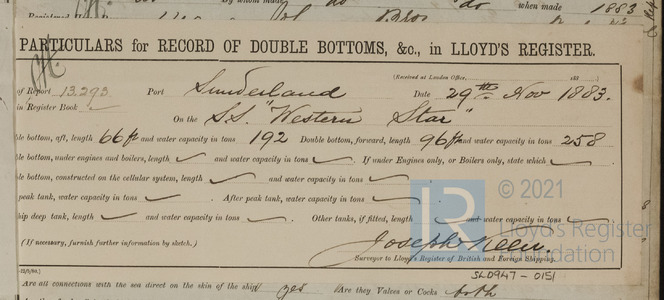 By whom made do do when made 1883
PARTICULARS for RECORD OF DOUBLE BOTTOMS, &c., in LLOYD'S REGISTER.
(Received at London Office, 188 )
of Report 13.293 Port Sunderland Date 29th Nov 1883.
in Register Book
On the S.S. "Western Star"
ble bottom, aft, length 66 ft and water capacity in tons 192 Double bottom, forward, length 96 ft and water capacity in tons 258
ble bottom, under engines and boilers, length and water capacity in tons . If under Engines only, or Boilers only, state which
ble bottom, constructed on the cellular system, length and water capacity in tons
peak tank, water capacity in tons . After peak tank, water capacity in tons
hip deep tank, length and water capacity in tons . Other tanks, if fitted, length and water capacity in tons
(If necessary, furnish further information by sketch.)
Joseph Keen.
Surveyor to Lloyd's Register of British and Foreign Shipping.
SLD947-0151
Are all connections with the sea direct on the skin of the ship yes Are they Valves or Cocks both
LR © 2021
Lloyd's Register
Foundation